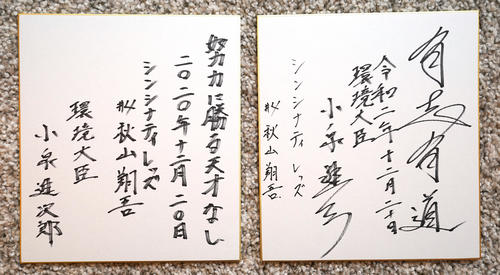 有志有道
令和二年十二月二十日
環境大臣
小泉進次郎
シンシナティ レッズ
#4 秋山翔吾
努力に勝る天才なし
二〇二〇年十二月二〇日
シンシナティレッズ
#4 秋山翔吾
環境大臣
小泉進次郎